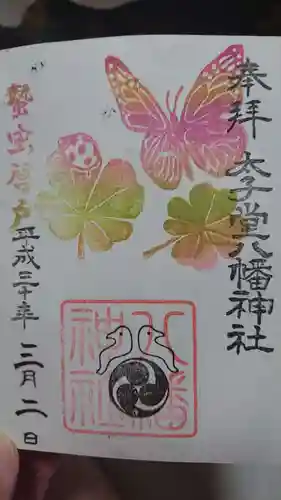 奉拝
太子堂八幡神社
八幡
神社
蟄虫啓戸
平成三十年
三月二日